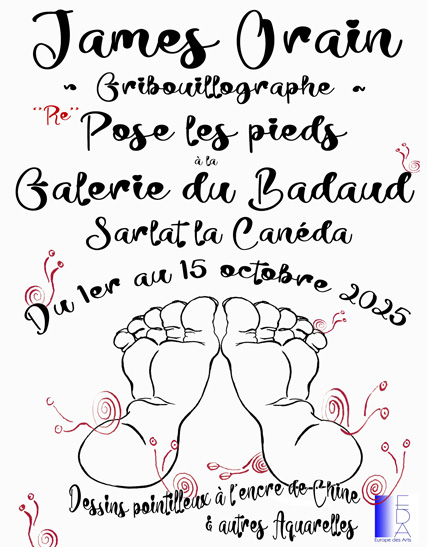 James Orain
~ Gribouillographe ~
"Re"
Pose les pieds
à la
Galerie du Badaud
Sarlat la Canéda
Du 1er au 15 octobre 2025
Dessins pointilleux à l'encre de Chine
& autres Aquarelles
EDA
Europe des Arts